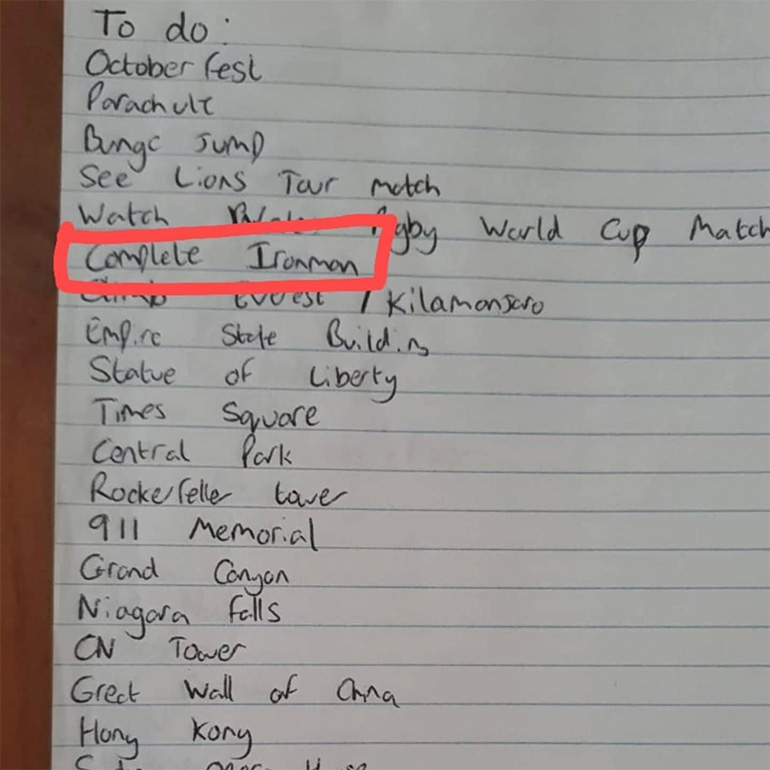 To do:
October fest
Parachute
Bunge Jump
See Lions Tour match
Watch Rugby World Cup Match
Complete Ironman
Climb Everest / Kilamonjaro
Empire State Building
Statue of Liberty
Times Square
Central Park
Rockerfeller tower
911 Memorial
Grand Canyon
Niagara falls
CN Tower
Great Wall of China
Hong Kong